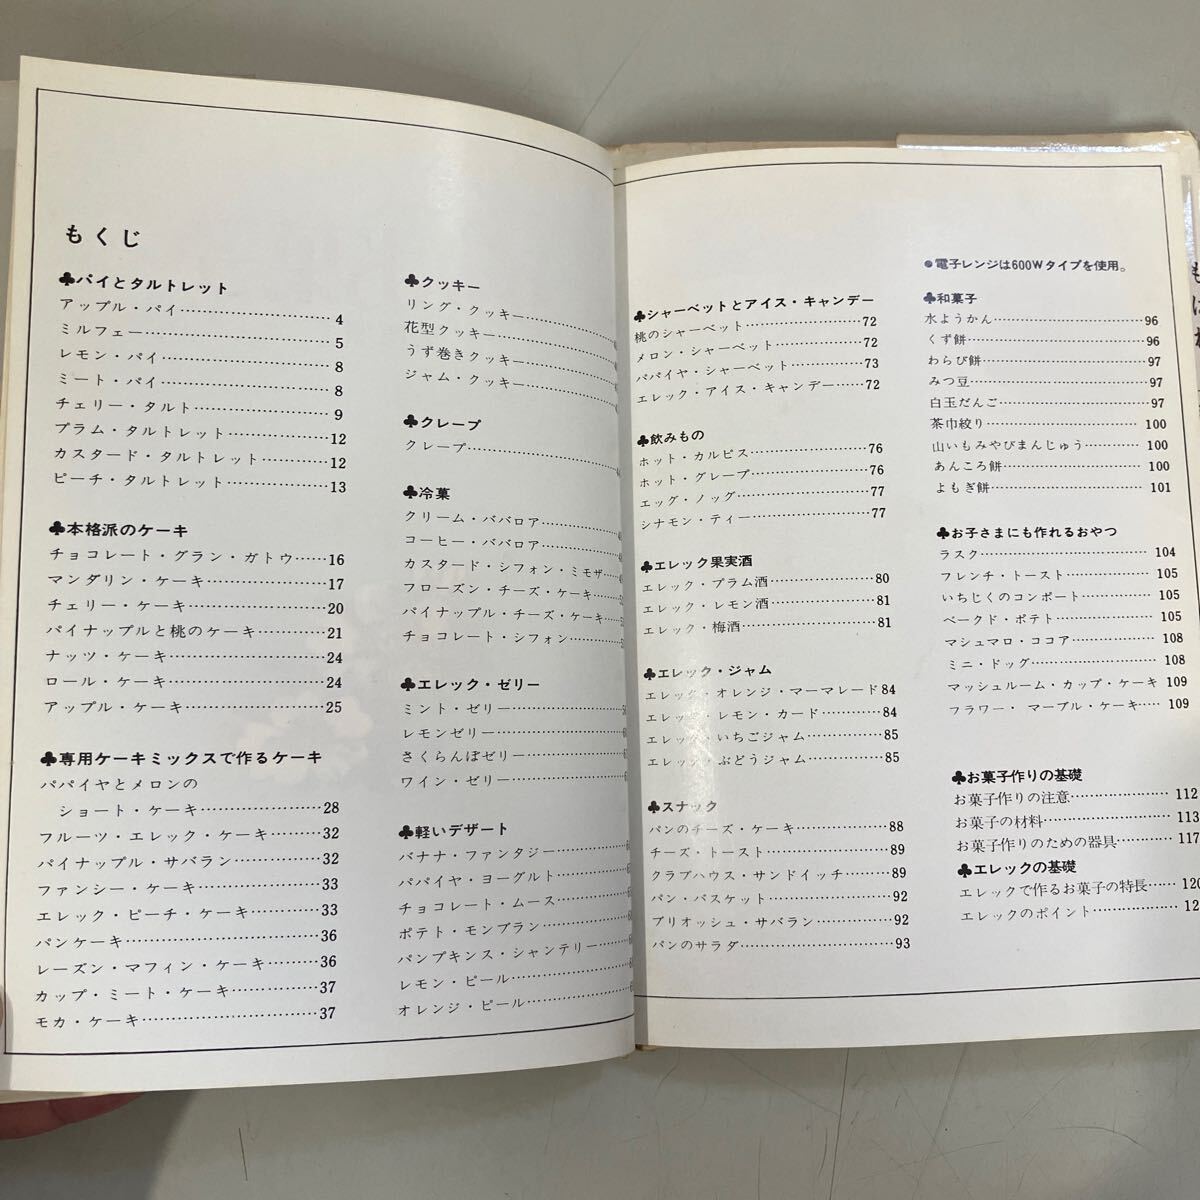 もくじ
♣パイとタルトレット
アップル・パイ……………………4
ミルフェー…………………………5
レモン・パイ………………………8
ミート・パイ………………………8
チェリー・タルト…………………9
プラム・タルトレット……………12
カスタード・タルトレット………12
ピーチ・タルトレット……………13
♣本格派のケーキ
チョコレート・グラン・ガトウ……16
マンダリン・ケーキ………………17
チェリー・ケーキ…………………20
パイナップルと桃のケーキ………21
ナッツ・ケーキ……………………24
ロール・ケーキ……………………24
アップル・ケーキ…………………25
♣専用ケーキミックスで作るケーキ
パパイヤとメロンの
ショート・ケーキ…………………28
フルーツ・エレック・ケーキ……32
パイナップル・サバラン…………32
ファンシー・ケーキ………………33
エレック・ピーチ・ケーキ………33
パンケーキ…………………………36
レーズン・マフィン・ケーキ……36
カップ・ミート・ケーキ…………37
モカ・ケーキ………………………37
♣クッキー
リング・クッキー…………………
花型クッキー………………………
うず巻きクッキー…………………
ジャム・クッキー…………………
♣クレープ
クレープ……………………………
♣冷菓
クリーム・ババロア………………
コーヒー・ババロア………………
カスタード・シフォン・ミモザ……
フローズン・チーズ・ケーキ……
パイナップル・チーズ・ケーキ……
チョコレート・シフォン…………
♣エレック・ゼリー
ミント・ゼリー……………………
レモンゼリー………………………
さくらんぼゼリー…………………
ワイン・ゼリー……………………
♣軽いデザート
バナナ・ファンタジー……………
パパイヤ・ヨーグルト……………
チョコレート・ムース……………
ポテト・モンブラン………………
パンプキンス・シャンテリー……
レモン・ピール……………………
オレンジ・ピール…………………
♣シャーベットとアイス・キャンデー
桃のシャーベット…………………72
メロン・シャーベット……………72
パパイヤ・シャーベット…………73
エレック・アイス・キャンデー……72
♣飲みもの
ホット・カルピス…………………76
ホット・グレープ…………………76
エッグ・ノッグ……………………77
シナモン・ティー…………………77
♣エレック果実酒
エレック・プラム酒………………80
エレック・レモン酒………………81
エレック・梅酒……………………81
♣エレック・ジャム
エレック・オレンジ・マーマレード 84
エレック・レモン・カード………84
エレック・いちごジャム…………85
エレック・ぶどうジャム…………85
♣スナック
パンのチーズ・ケーキ……………88
チーズ・トースト…………………89
クラブハウス・サンドイッチ……89
パン・バスケット…………………92
ブリオッシュ・サバラン…………92
パンのサラダ………………………93
●電子レンジは600Wタイプを使用。
♣和菓子
水ようかん…………………………96
くず餅………………………………96
わらび餅……………………………97
みつ豆………………………………97
白玉だんご…………………………97
茶巾絞り……………………………100
山いもみやびまんじゅう…………100
あんころ餅…………………………100
よもぎ餅……………………………101
♣お子さまにも作れるおやつ
ラスク………………………………104
フレンチ・トースト………………105
いちじくのコンポート……………105
ベークド・ポテト…………………105
マシュマロ・ココア………………108
ミニ・ドッグ………………………108
マッシュルーム・カップ・ケーキ 109
フラワー・マーブル・ケーキ……109
♣お菓子作りの基礎
お菓子作りの注意…………………112
お菓子の材料………………………113
お菓子作りのための器具…………117
♣エレックの基礎
エレックで作るお菓子の特長……120
エレックのポイント………………12